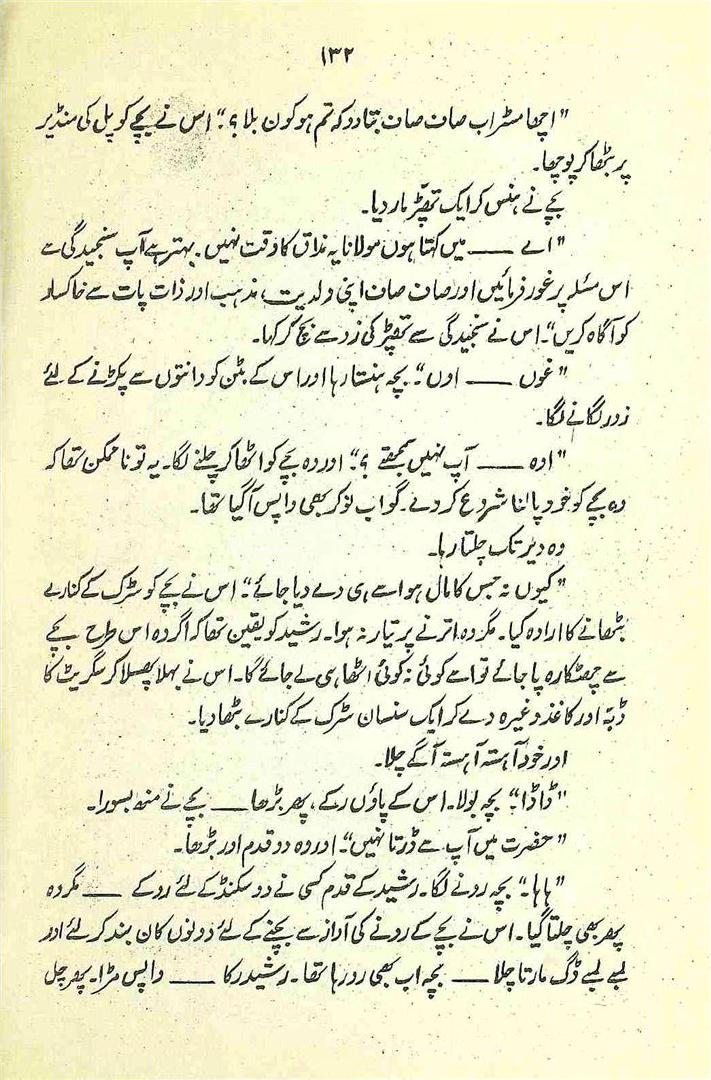 ۱۳۲
"اچھا مسٹر اب صاف صاف بتا دو کہ تم ہو کون بلا؟" اس نے بچے کو پل کی منڈیر
پر بٹھا کر پوچھا۔
بچے نے ہنس کر ایک تھپّڑ مار دیا۔
"اے —— میں کہتا ہوں مولانا یہ مذاق کا وقت نہیں۔ بہتر ہے آپ سنجیدگی سے
اس مسئلہ پر غور فرمائیں اور صاف صاف اپنی ولدیت، مذہب اور ذات پات سے خاکسار
کو آگاہ کریں"۔ اس نے سنجیدگی سے تھپڑ کی زد سے بچ کر کہا۔
"غوں —— اوں"۔ بچہ ہنستا رہا اور اس کے بٹن کو دانتوں سے پکڑنے کے لئے
زور لگانے لگا۔
"اوہ —— آپ نہیں سمجھے ؟" اور وہ بچے کو اٹھا کر چلنے لگا۔ یہ تو ناممکن تھا کہ
وہ بچے کو خود پالنا شروع کر دے۔ گو اب نوکر بھی واپس آگیا تھا۔
وہ دیر تک چلتا رہا۔
"کیوں نہ جس کا مال ہو اسے ہی دے دیا جائے"۔ اس نے بچے کو سڑک کے کنارے
بٹھانے کا ارادہ کیا۔ مگر وہ اترنے پر تیار نہ ہوا۔ رشید کو یقین تھا کہ اگر وہ اس طرح بچے
سے چھٹکارہ پا جائے تو اسے کوئی نہ کوئی اٹھا ہی لے جائے گا۔ اس نے بہلا پھسلا کر سگریٹ کا
ڈبّہ اور کاغذ وغیرہ دے کر ایک سنسان سڑک کے کنارے بٹھا دیا۔
اور خود آہستہ آہستہ آگے چلا۔
"ڈاڈا"۔ بچہ بولا۔ اس کے پاؤں رکے، پھر بڑھا —— بچے نے منھ بسورا۔
"حضرت میں آپ سے ڈرتا نہیں"۔ اور وہ دو قدم اور بڑھا۔
"ہاہا۔" بچہ رونے لگا۔ رشید کے قدم کسی نے دو سکنڈ کے لئے روکے —— مگر وہ
پھر بھی چلتا گیا۔ اس نے بچے کے رونے کی آواز سے بچنے کے لئے دونوں کان بند کر لئے اور
لمبے لمبے ڈگ مارتا چلا —— بچہ اب بھی رو رہا تھا۔ رشید رکا —— واپس مڑا۔ پھر چل